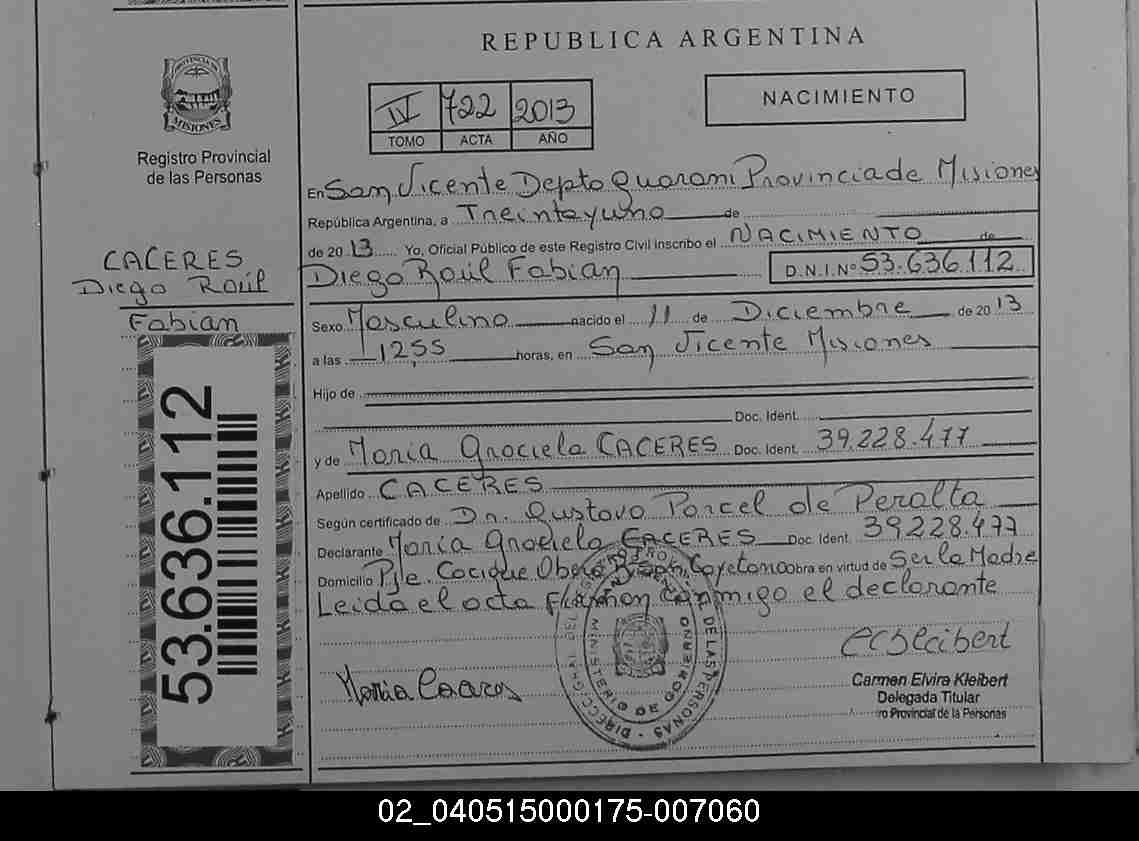 REPUBLICA ARGENTINA
PROVINCIA DE
MISIONES
Registro Provincial
de las Personas
IV 722 2013
TOMO ACTA AÑO
NACIMIENTO
CACERES
Diego Raúl
Fabian
53.636.112
En San Vicente Depto Guarani Provincia de Misiones
República Argentina, a Treinta y uno de
de 2013 Yo, Oficial Público de este Registro Civil inscribo el NACIMIENTO de
Diego Raúl Fabian D.N.I.Nº 53.636.112
Sexo Masculino nacido el 11 de Diciembre de 2013
a las 12,55 horas, en San Vicente Misiones
Hijo de
Doc. Ident.
y de Maria Graciela CACERES Doc. Ident. 39.228.477
Apellido CACERES
Según certificado de Dr. Gustavo Porcel de Peralta
Declarante Maria Graciela CACERES Doc. Ident. 39.228.477
Domicilio Pje. Cacique Obera San Cayetano obra en virtud de Ser la Madre
Leida el acta Firman conmigo el declarante
Maria Caceres
MINISTERIO DE GOBIERNO
DE LAS PERSONAS
Carmen Elvira Kleibert
Delegada Titular
ro Provincial de la Personas
02_040515000175-007060